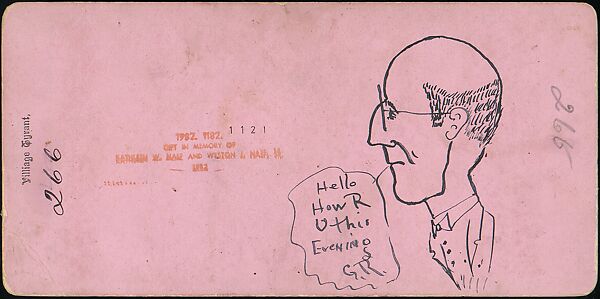 Villiage Tyrant,
266
1982. 1182. 1121
GIFT IN MEMORY OF
KATHLEEN W. NAEF AND WESTON J. NAEF, SR.
Hello
How R
U this
Evening
G.R.
266